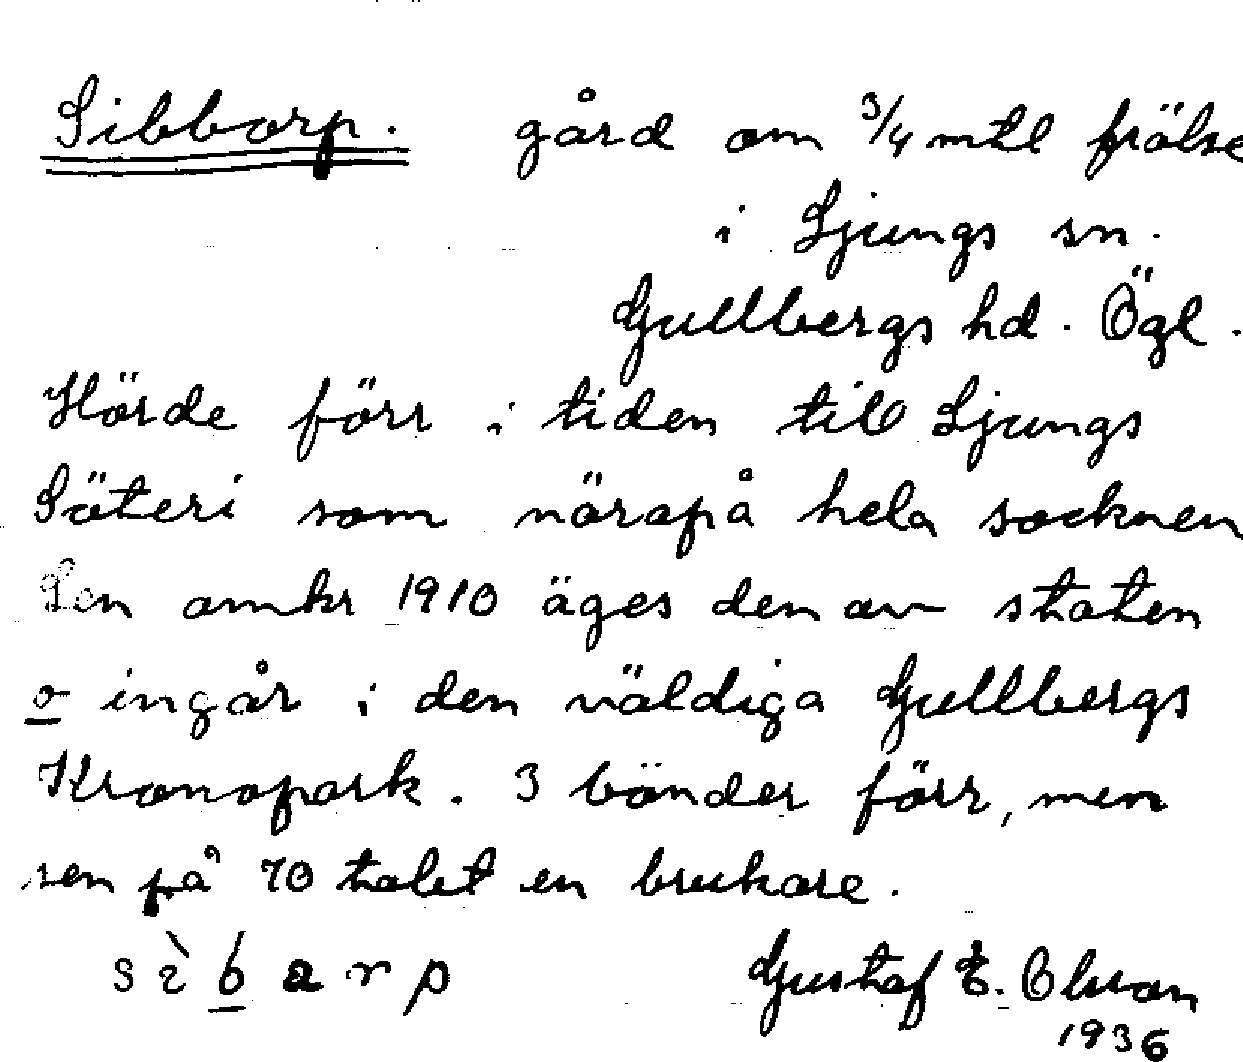 Sibbarp. gård om 3/4 mtl frälse
i Ljungs sn.
Gullbergs hd. Ögl.
Hörde förr i tiden till Ljungs
Säteri som närapå hela socknen
Sen omkr 1910 äges den av staten
o ingår i den väldiga Gullbergs
Kronopark. 3 bönder förr, men
sen på 70 talet en brukare.
sìbarp Gustaf E. Olsson
1936